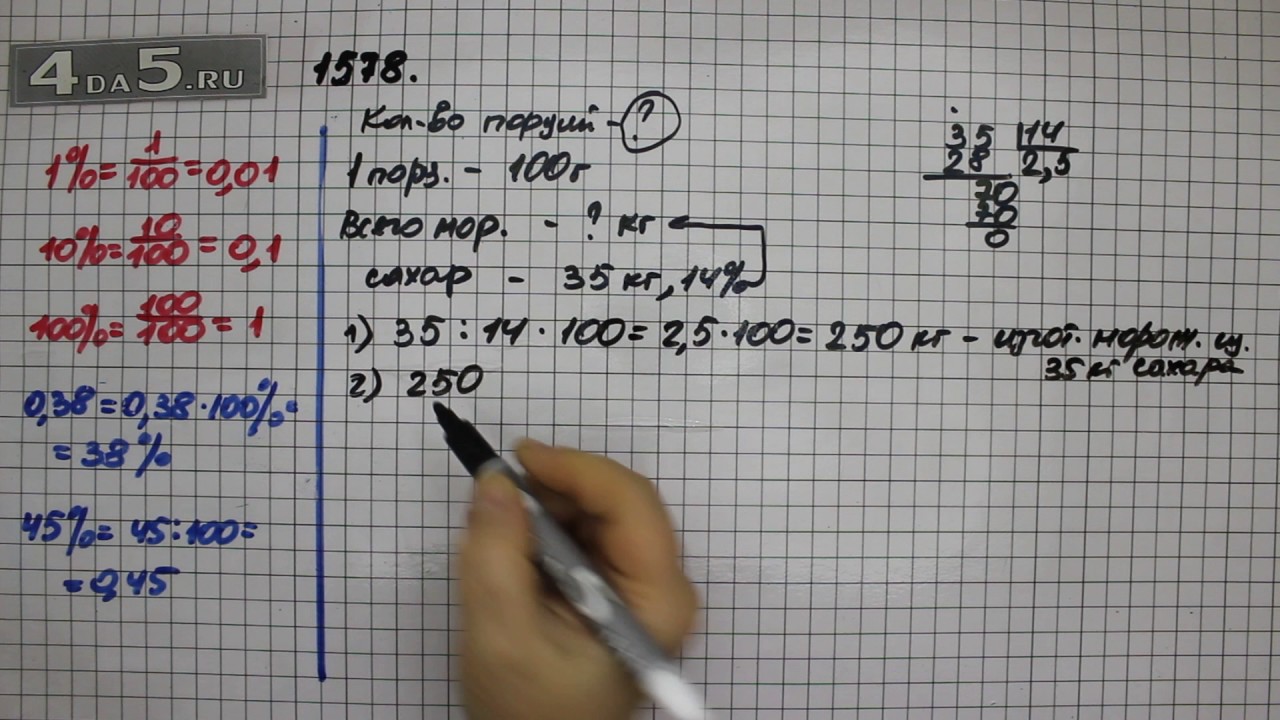 4DA5.RU
1578.
1% = 1/100 = 0,01
10% = 10/100 = 0,1
100% = 100/100 = 1
0,38 = 0,38 · 100% =
= 38%
45% = 45 : 100 =
= 0,45
Кол-во порций - ?
1 порц. - 100 г
Всего мор. - ? кг
сахар - 35 кг, 14%
1) 35 : 14 · 100 = 2,5 · 100 = 250 кг - изгот. морож. из.
35 кг сахара
2) 250
35 14
28 2,5
70
70
0